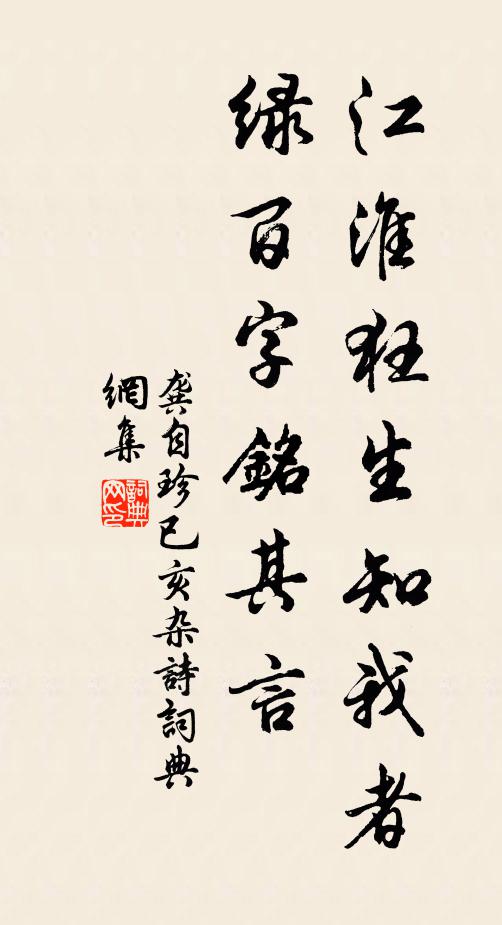 江淮狂生知我者
绿百字銘其言
龔自珍己亥杂詩詞典
網集
詞典網印